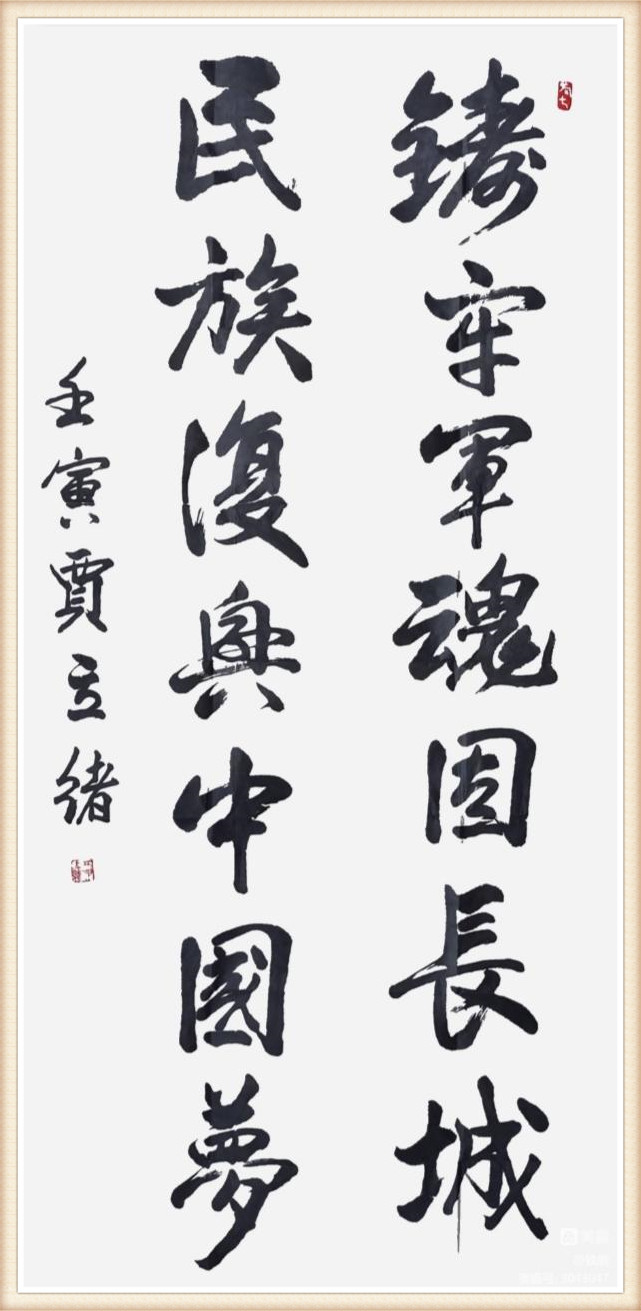 鑄牢軍魂固長城
民族復興中國夢
壬寅賈立緒